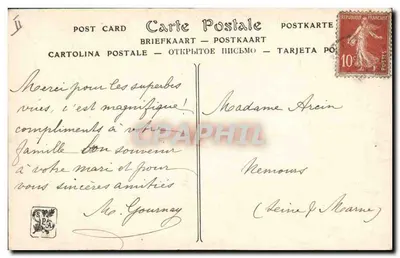 II
POST CARD Carte Postale POSTKARTE
BRIEFKAART — POSTKAART
CARTOLINA POSTALE — ОТКРЫТОЕ ПИСЬМО — TARJETA PO
REPUBLIQUE FRANÇAISE
10c
POSTES
Merci pour les superbes
vues, c'est magnifique!
compliments à votre
famille Bon souvenir
à votre mari et pour
vous sincères amitiés
M. Gournay
Madame Arcin
Nemours
(Seine & Marne)
CPAPHIL